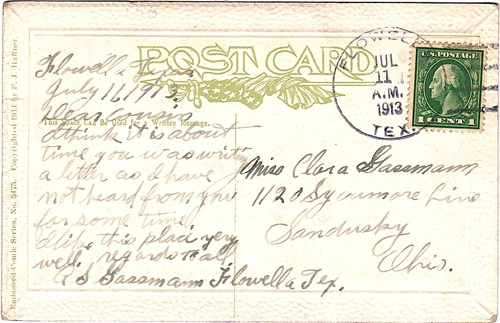 POST CARD
FLOWELLA
JUL
11
A.M.
1913
TEX.
U.S. POSTAGE
1 CENT 1
This Space Can Be Used for a Written Message.
Flowella Texas
July 11, 1913
I think it is about
time you was writing
a letter as I have
not heard from you
for some time
I like this place very
well. regards to all
Gassmann Flowella Tex.
Miss Clara Gassmann
1120 Sycamore Line
Sandusky
Ohio.
Embossed Comic Series, No. 5475. Copyrighted 1911 by F. J. Haffner.